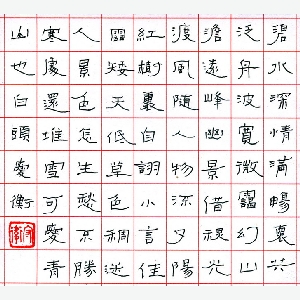 碧水深情滿暢裏共
泛舟波寬微靄幻山
澹遠峰幽景借視光
渡風隨人物深夕陽
紅樹裏自詡小言佳
矮天低草色稠迷
人景色怎生愁不勝
寒處還堆雪可慶青
山也白頭慶衡